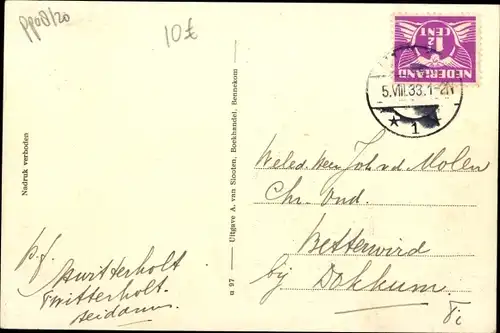 10£
1½ CENT
NEDERLAND
5.VIII.33.1-2N
★ 1 ★
Nadruk verboden
Uitgave A. van Slooten, Boekhandel, Bennekom
α 97
p.f.
Awitterholt
Twitterholt-
Weled. Heer Joh. v.d. Molen
Chr. Ond.
Betterwird
bij Dokkum.